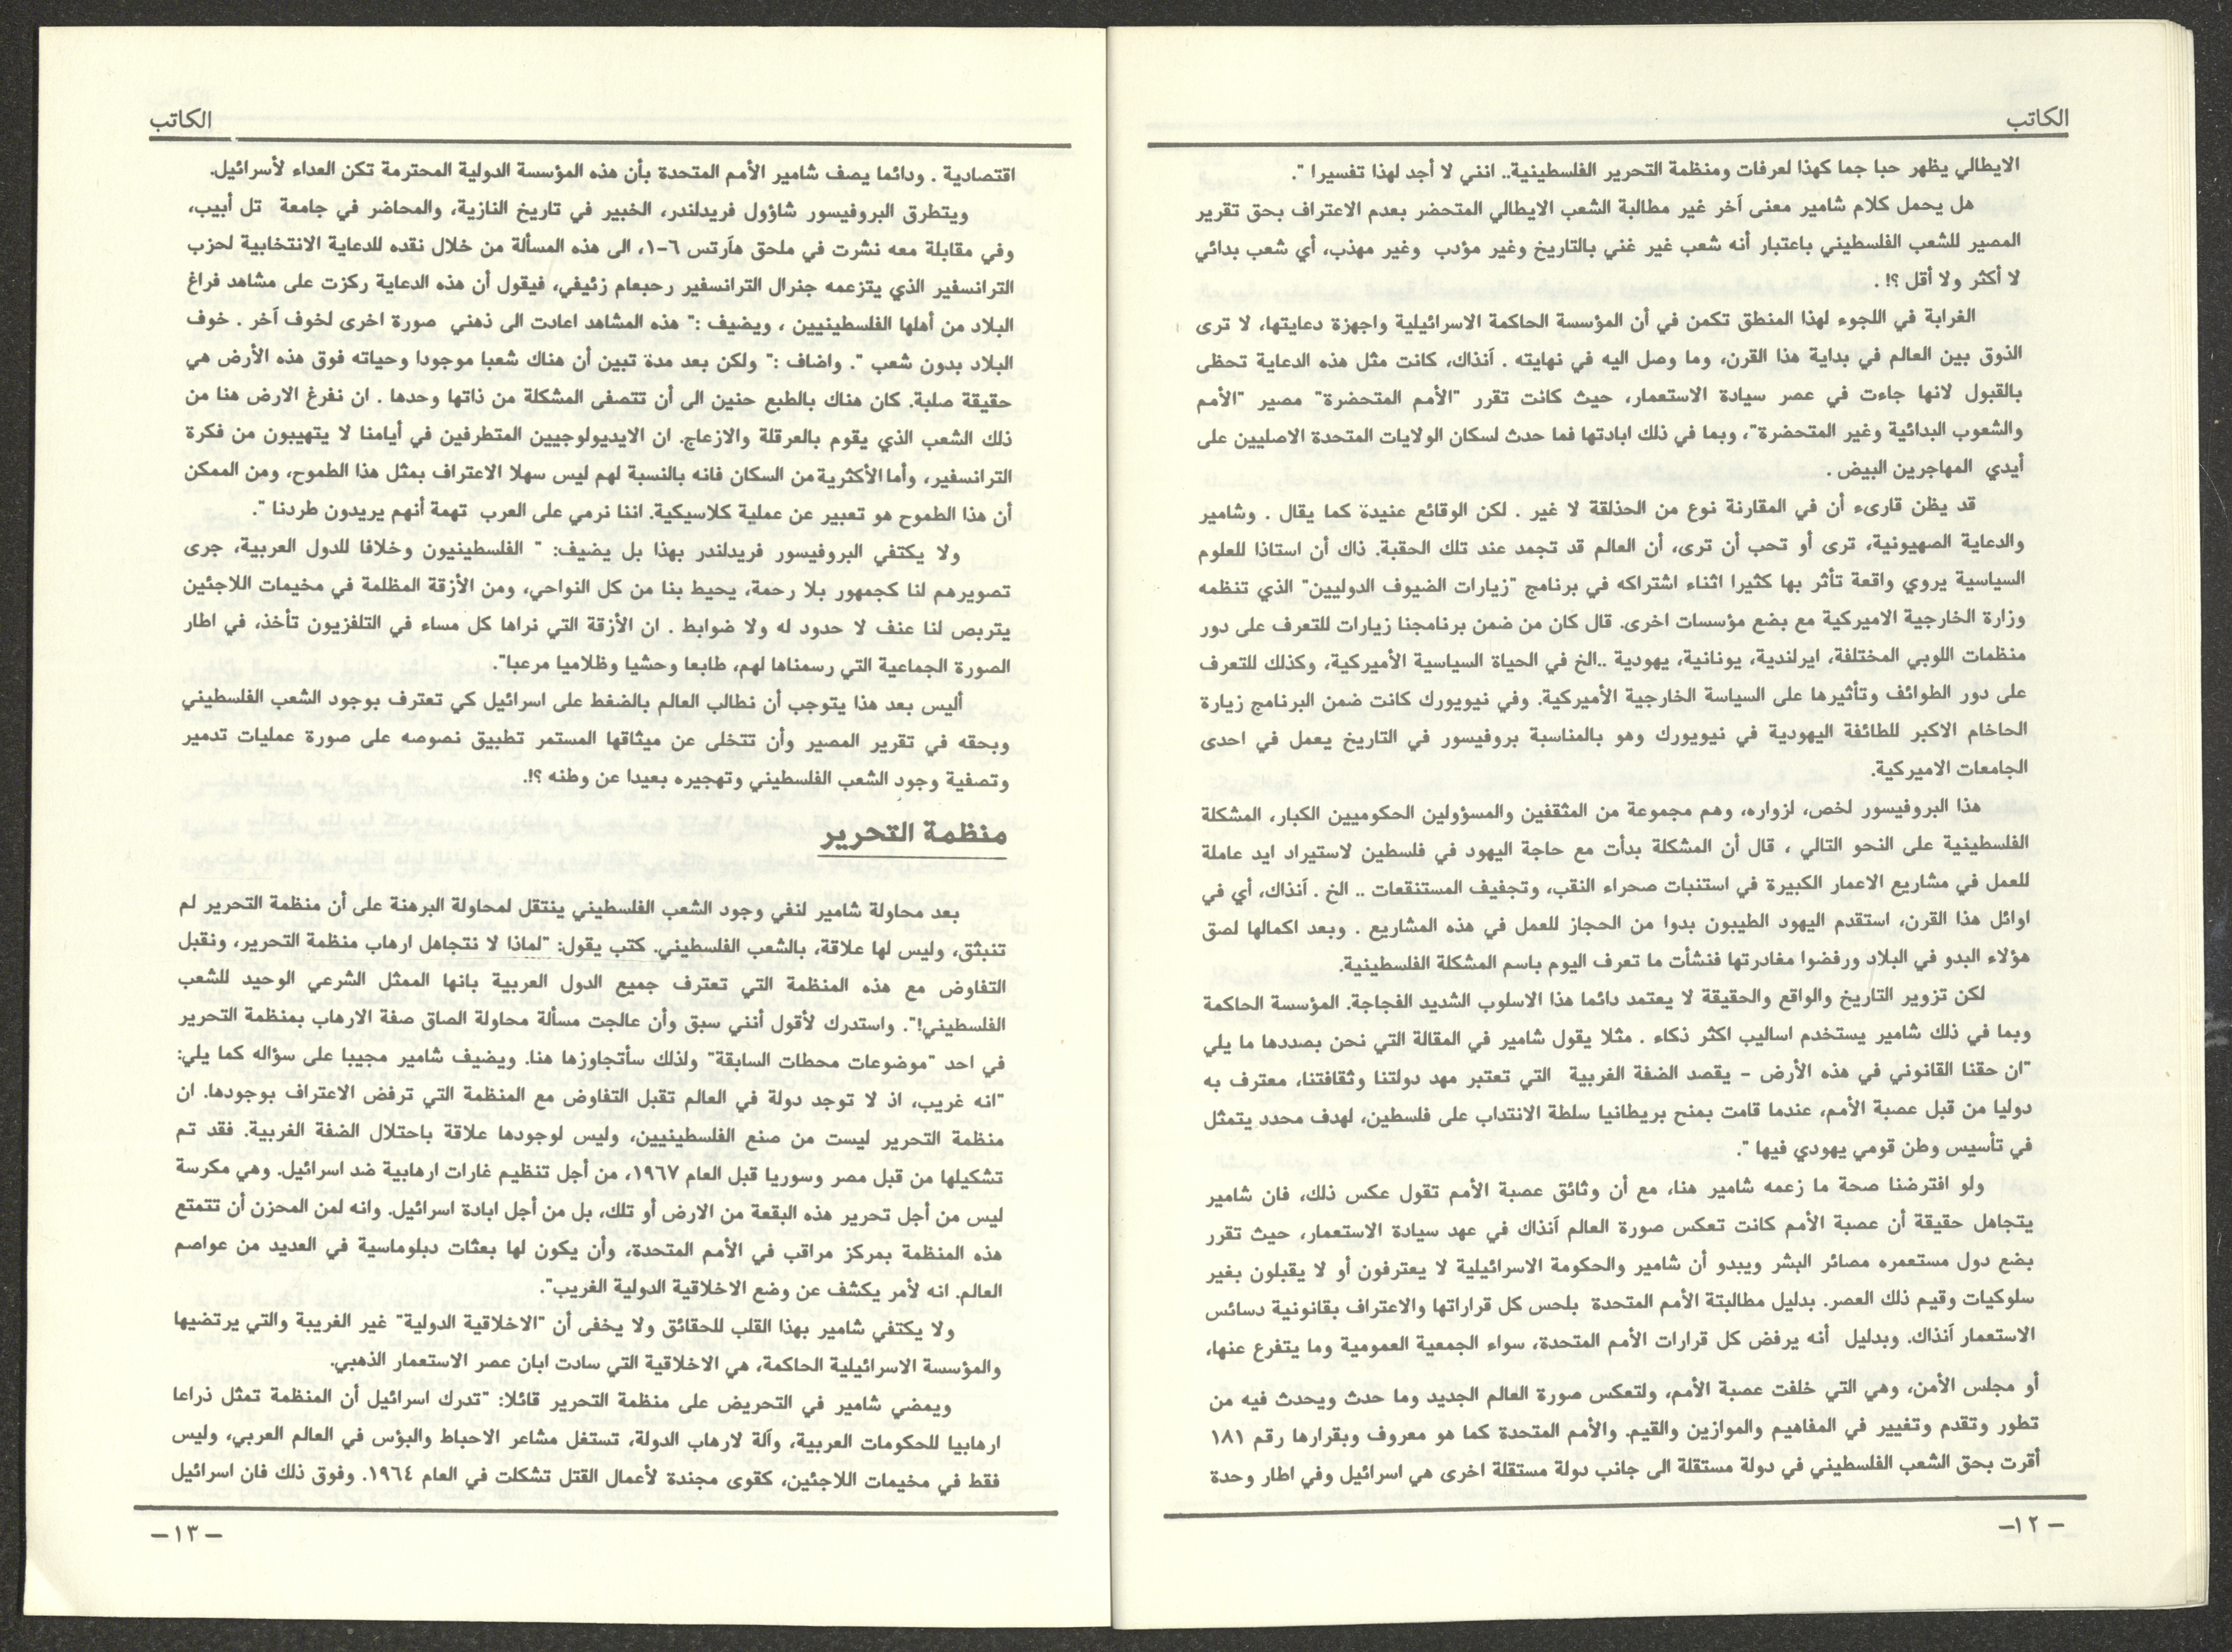 الكاتب
الايطالي يظهر حبا جما كهذا لعرفات ومنظمة التحرير الفلسطينية.. انني لا أجد لهذا تفسيرا ".
هل يحمل كلام شامير معنى آخر غير مطالبة الشعب الايطالي المتحضر بعدم الاعتراف بحق تقرير
المصير للشعب الفلسطيني باعتبار أنه شعب غير غني بالتاريخ وغير مؤدب وغير مهذب، أي شعب بدائي
لا أكثر ولا أقل ؟! .
الغرابة في اللجوء لهذا المنطق تكمن في أن المؤسسة الحاكمة الاسرائيلية واجهزة دعايتها، لا ترى
الذوق بين العالم في بداية هذا القرن، وما وصل اليه في نهايته . آنذاك، كانت مثل هذه الدعاية تحظى
بالقبول لانها جاءت في عصر سيادة الاستعمار، حيث كانت تقرر "الأمم المتحضرة" مصير "الأمم
والشعوب البدائية وغير المتحضرة"، وبما في ذلك ابادتها فما حدث لسكان الولايات المتحدة الاصليين على
أيدي المهاجرين البيض .
قد يظن قارىء أن في المقارنة نوع من الحذلقة لا غير . لكن الوقائع عنيدة كما يقال . وشامير
والدعاية الصهيونية، ترى أو تحب أن ترى، أن العالم قد تجمد عند تلك الحقبة. ذاك أن استاذا للعلوم
السياسية يروي واقعة تأثر بها كثيرا اثناء اشتراكه في برنامج "زيارات الضيوف الدوليين" الذي تنظمه
وزارة الخارجية الاميركية مع بضع مؤسسات اخرى. قال كان من ضمن برنامجنا زيارات للتعرف على دور
منظمات اللوبي المختلفة، ايرلندية، يونانية، يهودية ..الخ في الحياة السياسية الأميركية، وكذلك للتعرف
على دور الطوائف وتأثيرها على السياسة الخارجية الأميركية. وفي نيويورك كانت ضمن البرنامج زيارة
الحاخام الاكبر للطائفة اليهودية في نيويورك وهو بالمناسبة بروفيسور في التاريخ يعمل في احدى
الجامعات الاميركية.
هذا البروفيسور لخص، لزواره، وهم مجموعة من المثقفين والمسؤولين الحكوميين الكبار، المشكلة
الفلسطينية على النحو التالي ، قال أن المشكلة بدأت مع حاجة اليهود في فلسطين لاستيراد ايد عاملة
للعمل في مشاريع الاعمار الكبيرة في استنبات صحراء النقب، وتجفيف المستنقعات .. الخ . آنذاك، أي في
اوائل هذا القرن، استقدم اليهود الطيبون بدوا من الحجاز للعمل في هذه المشاريع . وبعد اكمالها لصق
هؤلاء البدو في البلاد ورفضوا مغادرتها فنشأت ما تعرف اليوم باسم المشكلة الفلسطينية.
لكن تزوير التاريخ والواقع والحقيقة لا يعتمد دائما هذا الاسلوب الشديد الفجاجة. المؤسسة الحاكمة
وبما في ذلك شامير يستخدم اساليب اكثر ذكاء . مثلا يقول شامير في المقالة التي نحن بصددها ما يلي
"ان حقنا القانوني في هذه الأرض – يقصد الضفة الغربية التي تعتبر مهد دولتنا وثقافتنا، معترف به
دوليا من قبل عصبة الأمم، عندما قامت بمنح بريطانيا سلطة الانتداب على فلسطين، لهدف محدد يتمثل
في تأسيس وطن قومي يهودي فيها ".
ولو افترضنا صحة ما زعمه شامير هنا، مع أن وثائق عصبة الأمم تقول عكس ذلك، فان شامير
يتجاهل حقيقة أن عصبة الأمم كانت تعكس صورة العالم آنذاك في عهد سيادة الاستعمار، حيث تقرر
بضع دول مستعمره مصائر البشر ويبدو أن شامير والحكومة الاسرائيلية لا يعترفون أو لا يقبلون بغير
سلوكيات وقيم ذلك العصر. بدليل مطالبتة الأمم المتحدة بلحس كل قراراتها والاعتراف بقانونية دسائس
الاستعمار آنذاك. وبدليل أنه يرفض كل قرارات الأمم المتحدة، سواء الجمعية العمومية وما يتفرع عنها،
أو مجلس الأمن، وهي التي خلفت عصبة الأمم، ولتعكس صورة العالم الجديد وما حدث ويحدث فيه من
تطور وتقدم وتغيير في المفاهيم والموازين والقيم. والأمم المتحدة كما هو معروف وبقرارها رقم ١٨١
أقرت بحق الشعب الفلسطيني في دولة مستقلة الى جانب دولة مستقلة اخرى هي اسرائيل وفي اطار وحدة
– ١٢–
الكاتب
اقتصادية . ودائما يصف شامير الأمم المتحدة بأن هذه المؤسسة الدولية المحترمة تكن العداء لأسرائيل.
ويتطرق البروفيسور شاؤول فريدلندر، الخبير في تاريخ النازية، والمحاضر في جامعة تل أبيب،
وفي مقابلة معه نشرت في ملحق هآرتس ٦–١، الى هذه المسألة من خلال نقده للدعاية الانتخابية لحزب
الترانسفير الذي يتزعمه جنرال الترانسفير رحبعام زئيفي، فيقول أن هذه الدعاية ركزت على مشاهد فراغ
البلاد من أهلها الفلسطينيين ، ويضيف :" هذه المشاهد اعادت الى ذهني صورة اخرى لخوف آخر . خوف
البلاد بدون شعب ". واضاف :" ولكن بعد مدة تبين أن هناك شعبا موجودا وحياته فوق هذه الأرض هي
حقيقة صلبة. كان هناك بالطبع حنين الى أن تتصفى المشكلة من ذاتها وحدها . ان نفرغ الارض هنا من
ذلك الشعب الذي يقوم بالعرقلة والازعاج. ان الايديولوجيين المتطرفين في أيامنا لا يتهيبون من فكرة
الترانسفير، وأما الأكثرية من السكان فانه بالنسبة لهم ليس سهلا الاعتراف بمثل هذا الطموح، ومن الممكن
أن هذا الطموح هو تعبير عن عملية كلاسيكية. اننا نرمي على العرب تهمة أنهم يريدون طردنا ".
ولا يكتفي البروفيسور فريدلندر بهذا بل يضيف: " الفلسطينيون وخلافا للدول العربية، جرى
تصويرهم لنا كجمهور بلا رحمة، يحيط بنا من كل النواحي، ومن الأزقة المظلمة في مخيمات اللاجئين
يتربص لنا عنف لا حدود له ولا ضوابط . ان الأزقة التي نراها كل مساء في التلفزيون تأخذ، في اطار
الصورة الجماعية التي رسمناها لهم، طابعا وحشيا وظلاميا مرعبا".
أليس بعد هذا يتوجب أن نطالب العالم بالضغط على اسرائيل كي تعترف بوجود الشعب الفلسطيني
وبحقه في تقرير المصير وأن تتخلى عن ميثاقها المستمر تطبيق نصوصه على صورة عمليات تدمير
وتصفية وجود الشعب الفلسطيني وتهجيره بعيدا عن وطنه ؟!.
منظمة التحرير
بعد محاولة شامير لنفي وجود الشعب الفلسطيني ينتقل لمحاولة البرهنة على أن منظمة التحرير لم
تنبثق، وليس لها علاقة، بالشعب الفلسطيني. كتب يقول: "لماذا لا نتجاهل ارهاب منظمة التحرير، ونقبل
التفاوض مع هذه المنظمة التي تعترف جميع الدول العربية بانها الممثل الشرعي الوحيد للشعب
الفلسطيني!". واستدرك لأقول أنني سبق وأن عالجت مسألة محاولة الصاق صفة الارهاب بمنظمة التحرير
في احد "موضوعات محطات السابقة" ولذلك سأتجاوزها هنا. ويضيف شامير مجيبا على سؤاله كما يلي:
"انه غريب، اذ لا توجد دولة في العالم تقبل التفاوض مع المنظمة التي ترفض الاعتراف بوجودها. ان
منظمة التحرير ليست من صنع الفلسطينيين، وليس لوجودها علاقة باحتلال الضفة الغربية. فقد تم
تشكيلها من قبل مصر وسوريا قبل العام ١٩٦٧، من أجل تنظيم غارات ارهابية ضد اسرائيل. وهي مكرسة
ليس من أجل تحرير هذه البقعة من الارض أو تلك، بل من أجل ابادة اسرائيل. وانه لمن المحزن أن تتمتع
هذه المنظمة بمركز مراقب في الأمم المتحدة، وأن يكون لها بعثات دبلوماسية في العديد من عواصم
العالم. انه لأمر يكشف عن وضع الاخلاقية الدولية الغريب".
ولا يكتفي شامير بهذا القلب للحقائق ولا يخفى أن "الاخلاقية الدولية" غير الغريبة والتي يرتضيها
والمؤسسة الاسرائيلية الحاكمة، هي الاخلاقية التي سادت ابان عصر الاستعمار الذهبي.
ويمضي شامير في التحريض على منظمة التحرير قائلا: "تدرك اسرائيل أن المنظمة تمثل ذراعا
ارهابيا للحكومات العربية، وآلة لارهاب الدولة، تستغل مشاعر الاحباط والبؤس في العالم العربي، وليس
فقط في مخيمات اللاجئين، كقوى مجندة لأعمال القتل تشكلت في العام ١٩٦٤. وفوق ذلك فان اسرائيل
– ١٣–